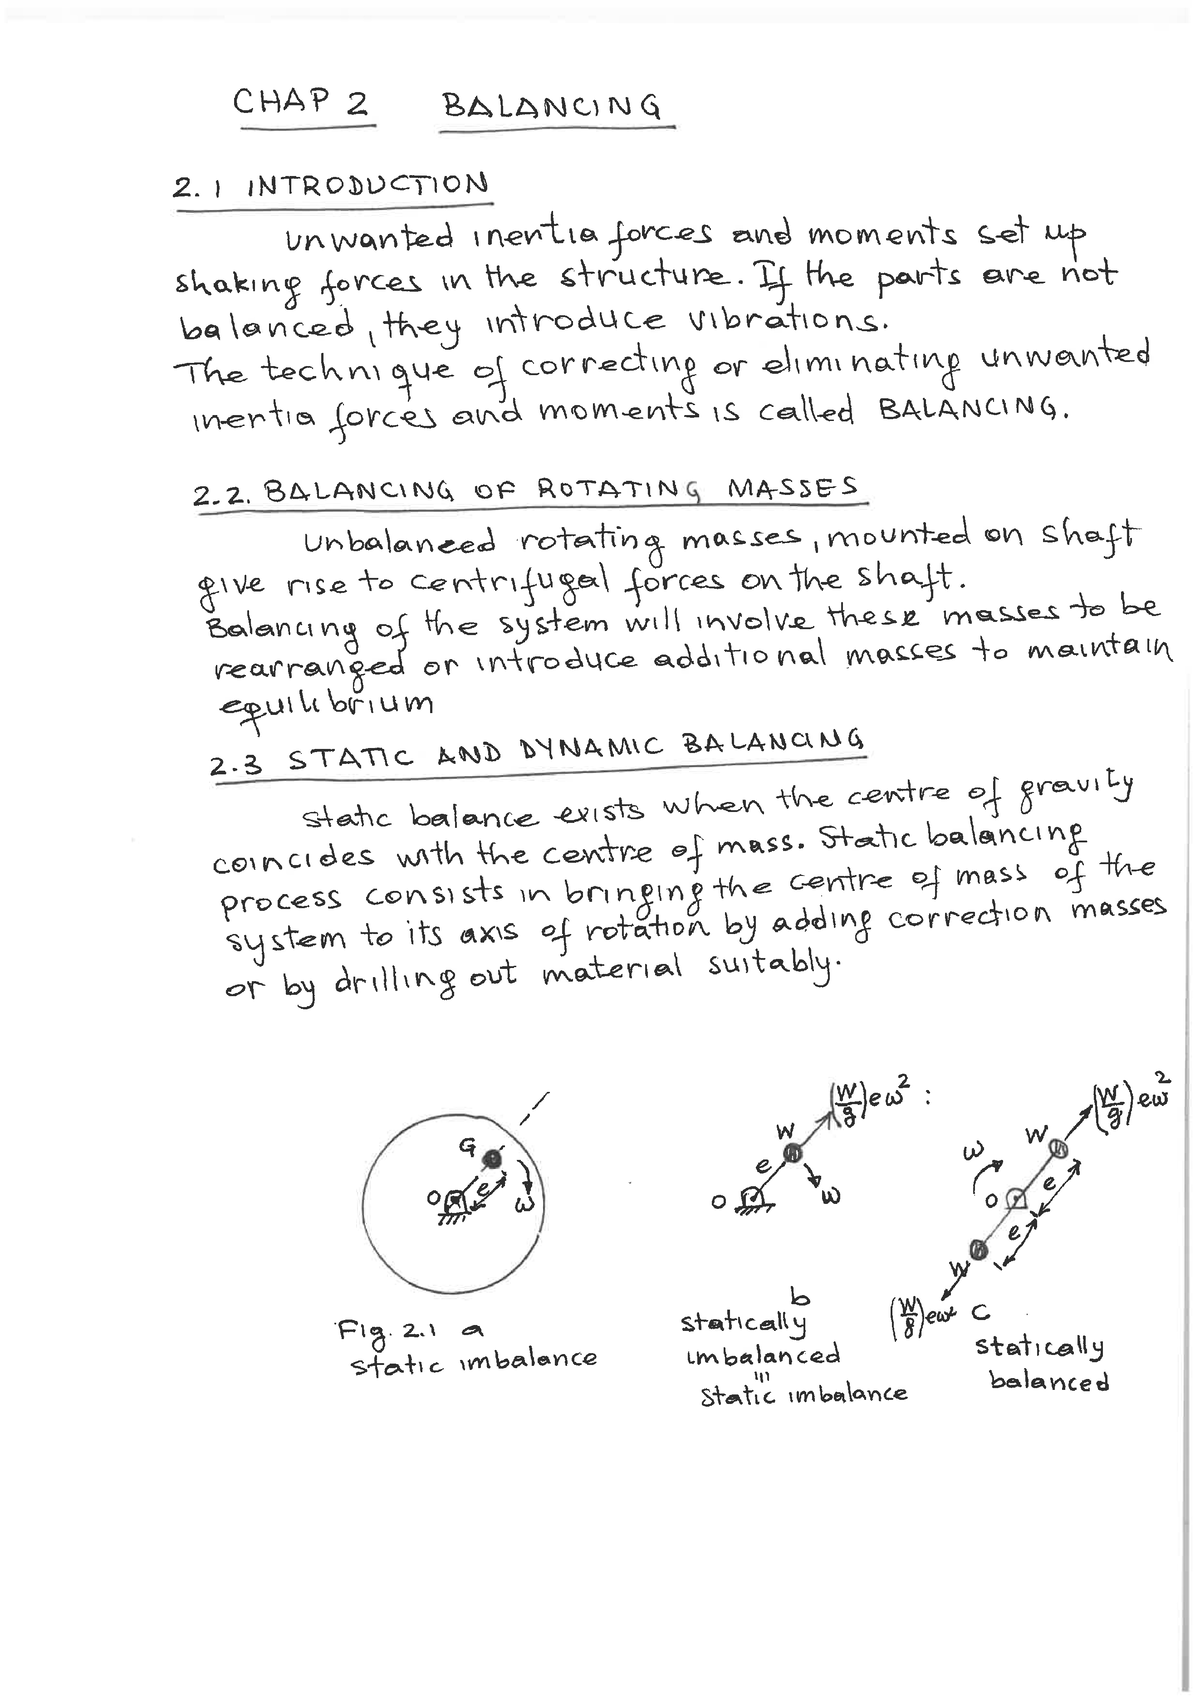 CHAP 2 BALANCING
2.1 INTRODUCTION
Unwanted inertia forces and moments set up
shaking forces in the structure. If the parts are not
balanced, they introduce vibrations.
The technique of correcting or eliminating unwanted
inertia forces and moments is called BALANCING.
2.2. BALANCING OF ROTATING MASSES
Unbalanced rotating masses, mounted on shaft
give rise to centrifugal forces on the shaft.
Balancing of the system will involve these masses to be
rearranged or introduce additional masses to maintain
equilibrium
2.3 STATIC AND DYNAMIC BALANCING
Static balance exists when the centre of gravity
coincides with the centre of mass. Static balancing
process consists in bringing the centre of mass of the
system to its axis of rotation by adding correction masses
or by drilling out material suitably.
G
O
e
ω
Fig. 2.1 a
static imbalance
(W/g)eω² :
W
e
O
ω
b
statically
imbalanced
"
static imbalance
(W/g)eω²
ω
W
O
e
e
W
(W/g)eω²
C
statically
balanced